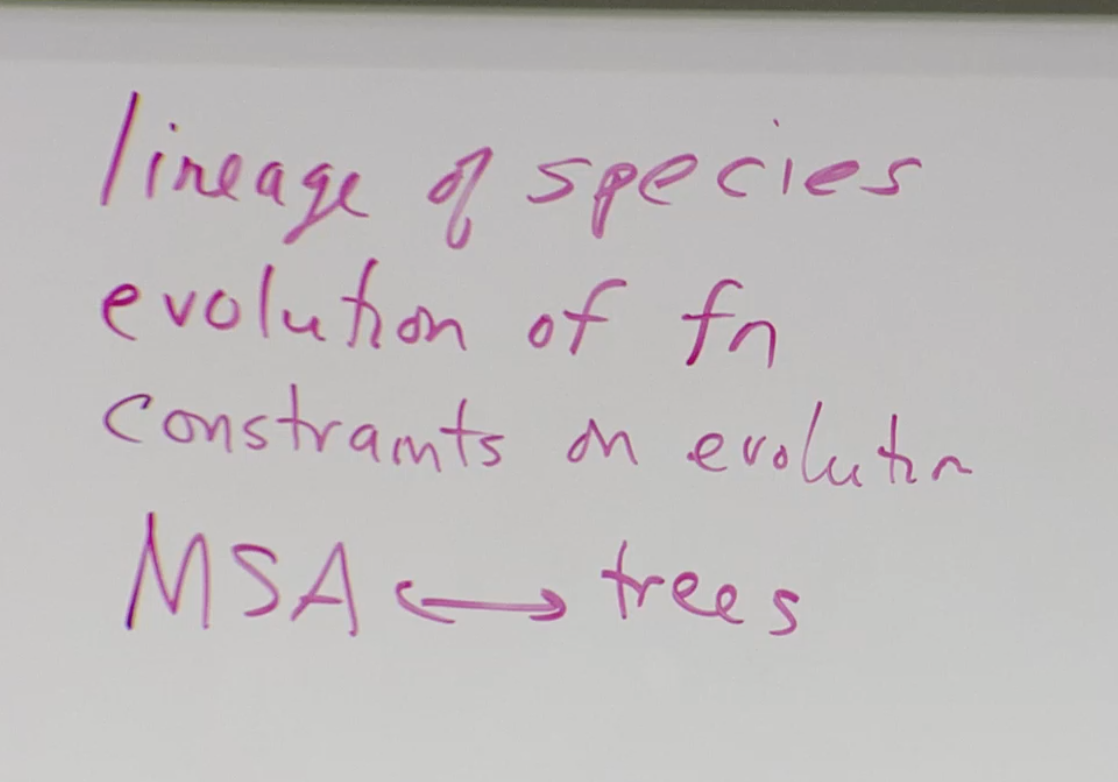 lineage of species
evolution of fn
constraints on evolution
MSA ⟷ trees